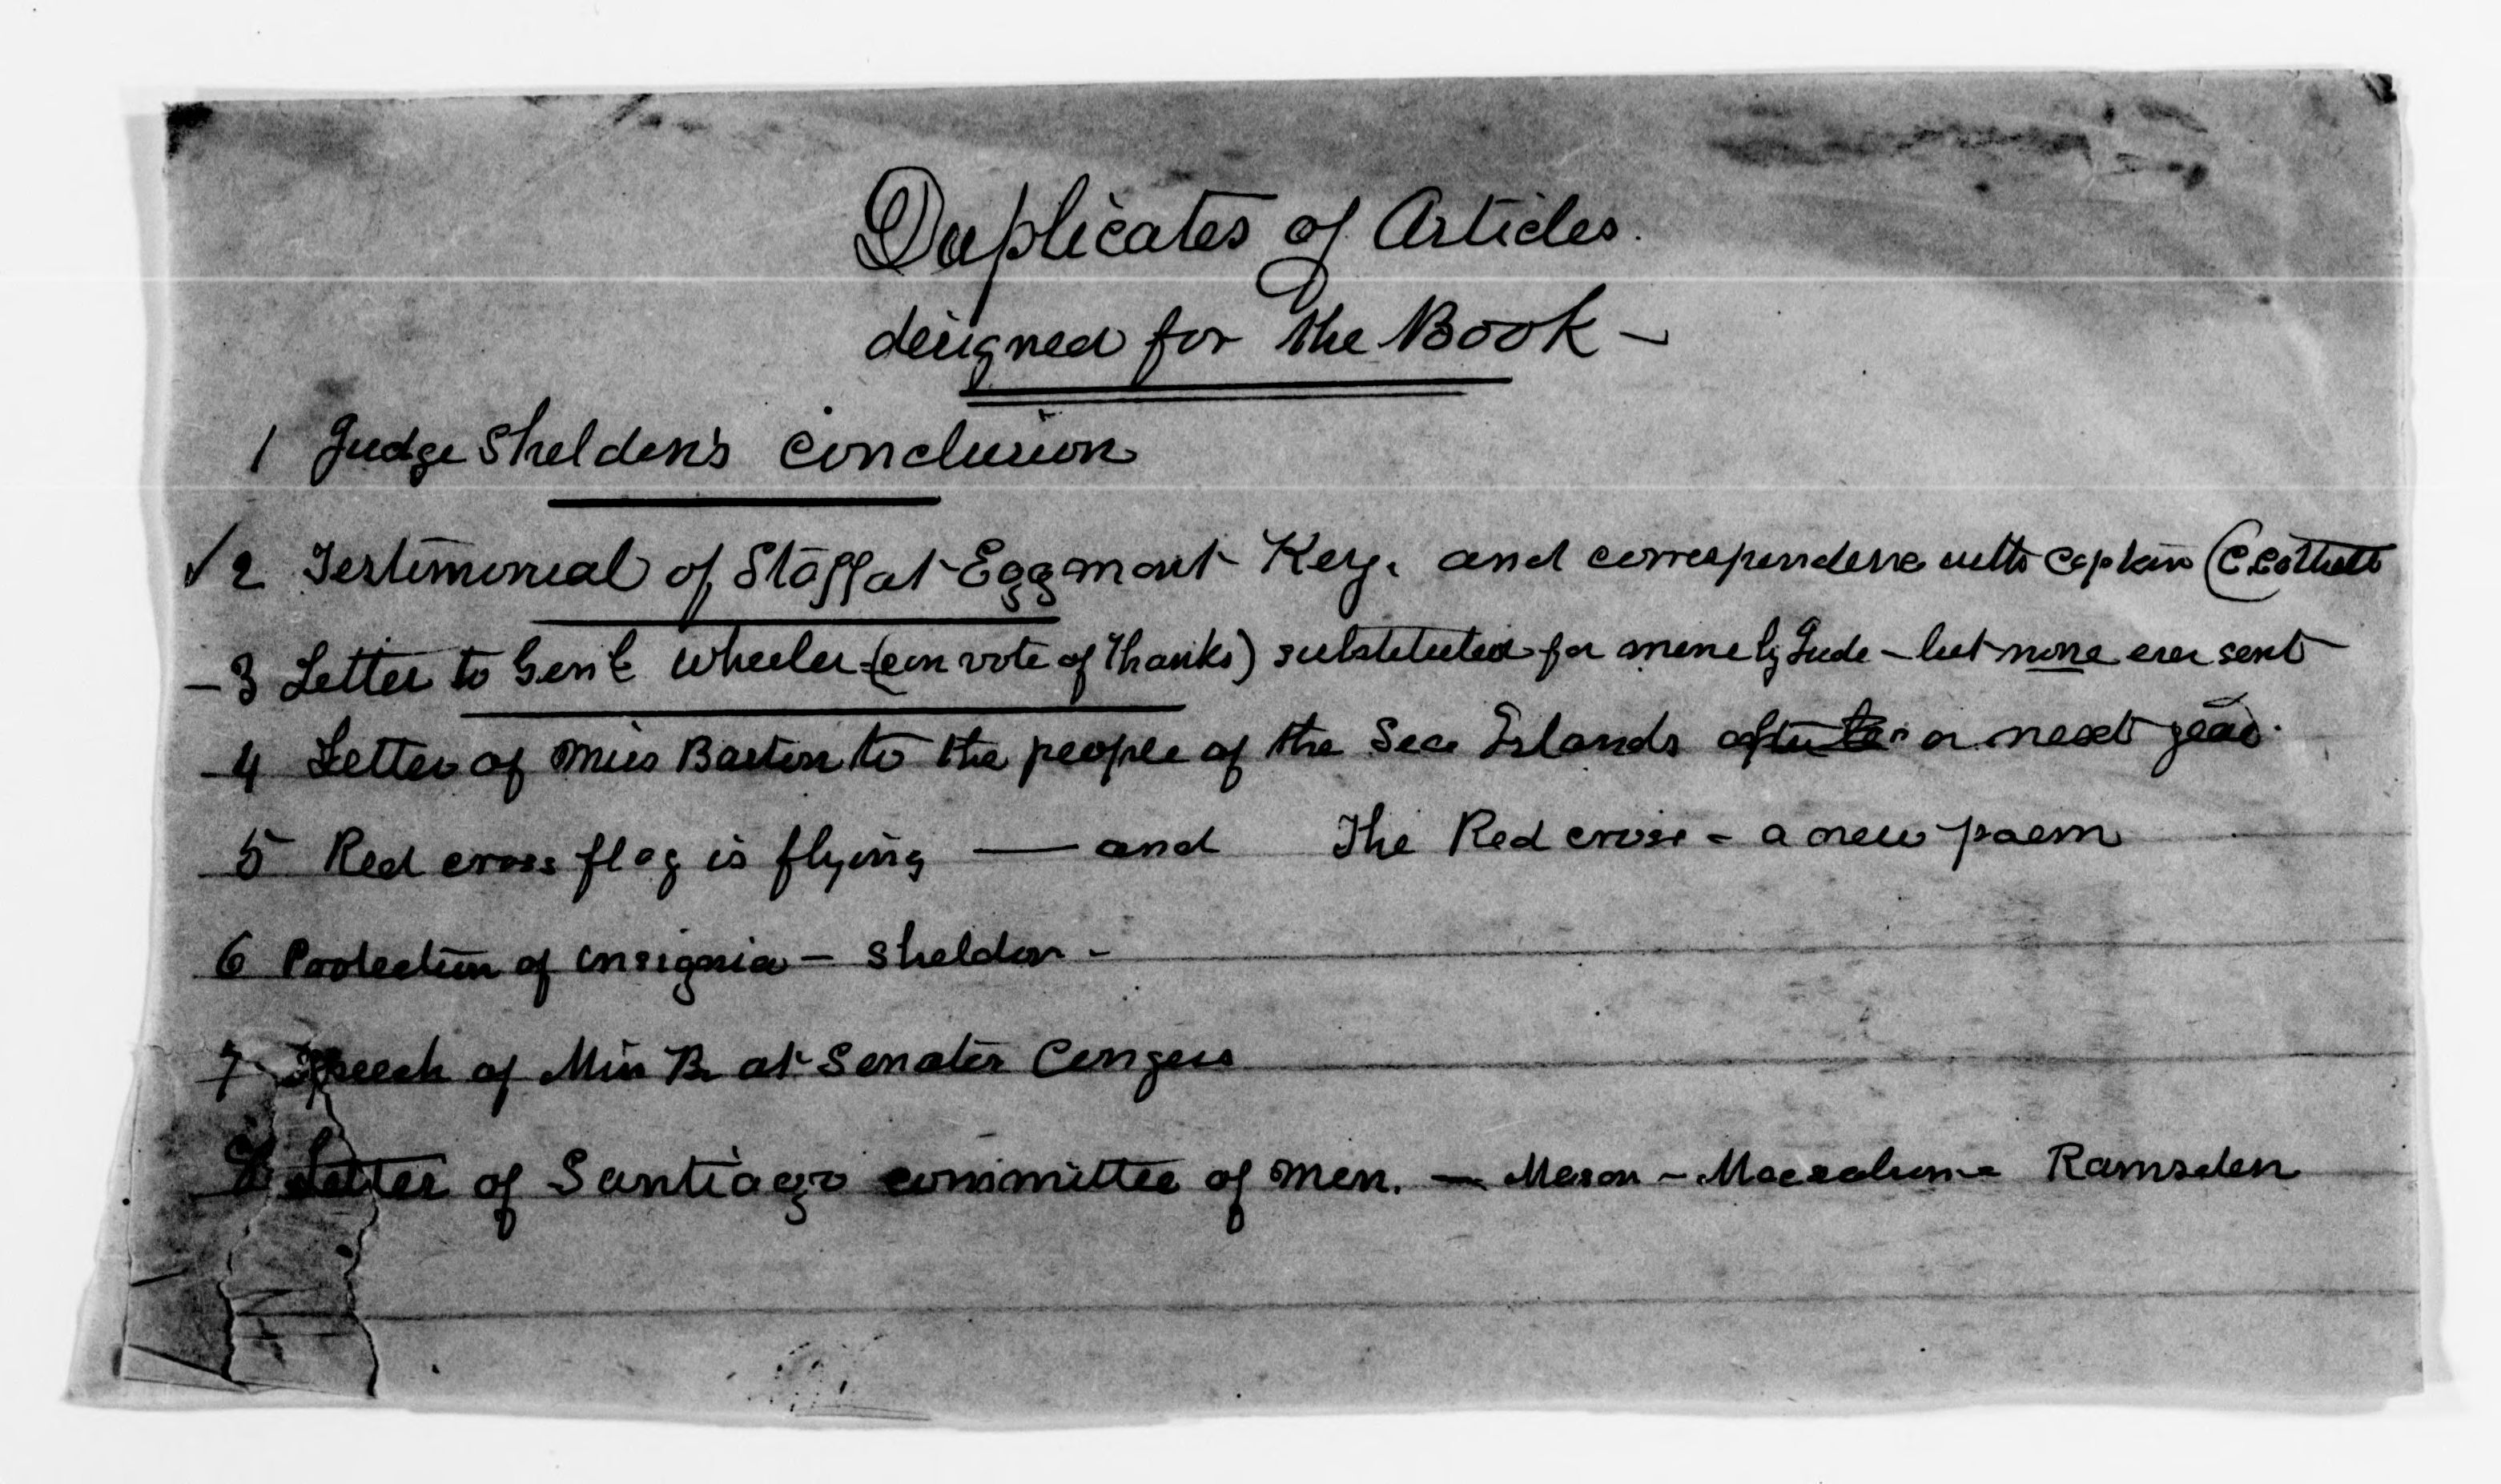 Duplicates of Articles.
designed for the Book —
1 Judge Sheldon's conclusion
✓2 Testimonial of Staff at Eggmont Key. and correspondence with Captain (C.C.
—3 Letter to Genl Wheeler (on vote of Thanks) substituted for mine by Jude — but none ever sent
—4 Letter of Miss Barton to the people of the Sea Islands after or next year.
5 Red cross flag is flying — and The Red cross — a new poem
6 Protection of insignia — Sheldon —
7 Speech of Miss B. at Senator Congers
8 Letter of Santiago committee of men. — Mason — Ramsden